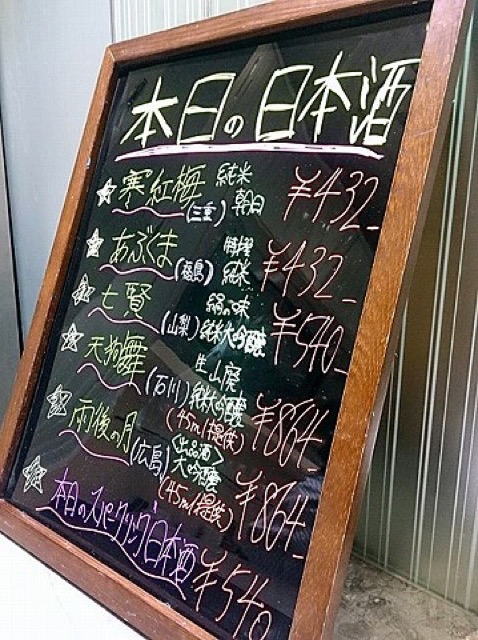 本日の日本酒
☆寒紅梅(三重) 純米 朝日 ¥432-
☆あぶくま(福島) 特撰 純米 ¥432-
☆七賢(山梨) 絹の味 純米大吟醸 ¥540-
☆天狗舞(石川) 生 山廃 純米大吟醸 (45ml提供) ¥864-
☆雨後の月(広島) <出品酒> 大吟醸 (45ml提供) ¥864-
☆本日のスパークリング日本酒 ¥540